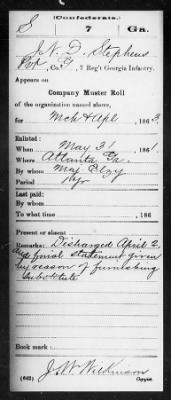 (Confederate.)
S 7 Ga.
J. N. D. Stephens
Pvt, Co. G, 7 Reg't Georgia Infantry.
Appears on
Company Muster Roll
of the organization named above,
for Mch & Apl, 1863
Enlisted:
When May 31, 1861
Where Atlanta, Ga.
By whom Maj
Period 1 yr
Last paid:
By whom
To what time , 186
Present or absent
Remarks: Discharged April 2.
final statement given
by reason of furnishing
Substitute
Book mark:
J. W. Wilkinson
(642) Copyist.